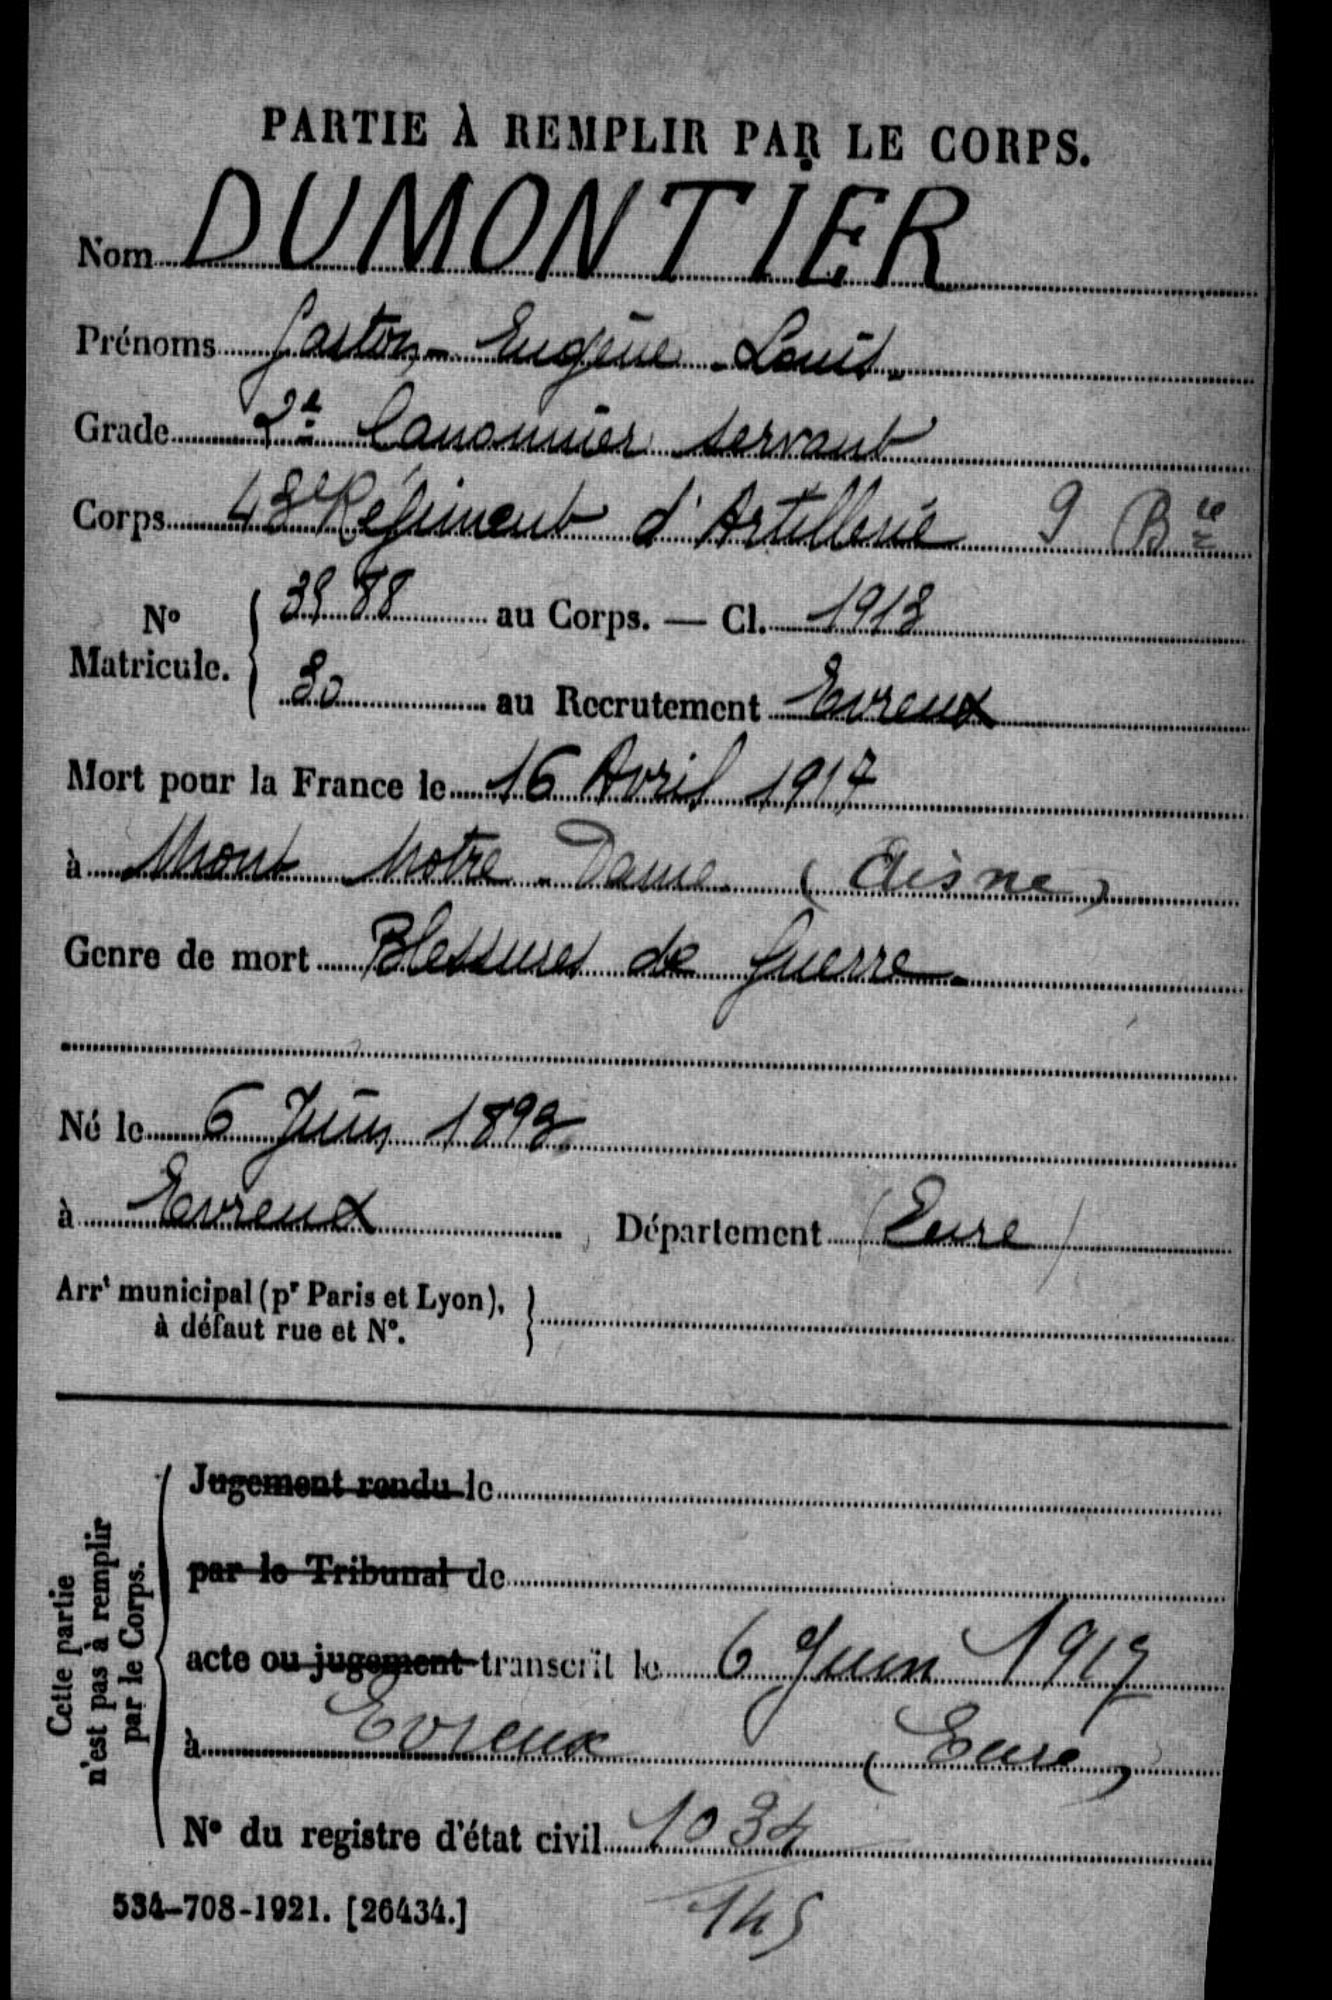 PARTIE À REMPLIR PAR LE CORPS.
Nom DUMONTIER
Prénoms Gaston - Eugène - Louis
Grade 2e Canonnier servant
Corps 43e Régiment d'Artillerie 9 Bie
No Matricule. 3988 au Corps. — Cl. 1913
30 au Recrutement Evreux
Mort pour la France le 16 Avril 1917
à Mont Notre-Dame (Aisne)
Genre de mort Blessures de Guerre
Né le 6 Juin 1893
à Evreux Département (Eure)
Arrt municipal (pr Paris et Lyon),
à défaut rue et No.
Cette partie
n'est pas à remplir
par le Corps.
Jugement rendu le
par le Tribunal de
acte ou jugement transcrit le 6 Juin 1917
à Evreux (Eure)
No du registre d'état civil 1034
534-708-1921. [26434.] 145